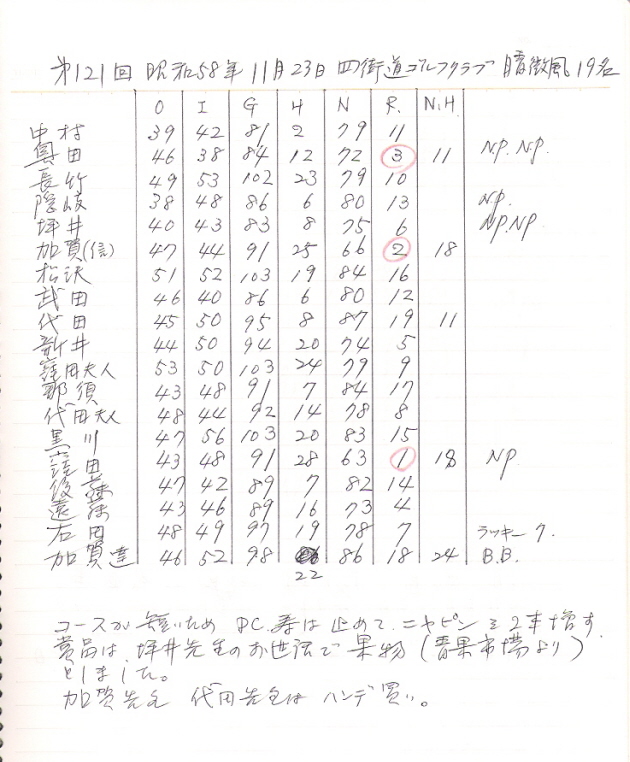 第121回 昭和58年 11月23日 四街道ゴルフクラブ 晴微風 19名
O I G H N R. N.H.
中村 39 42 81 2 79 11
奥田 46 38 84 12 72 3 11 N.P. N.P.
長竹 49 53 102 23 79 10
隠岐 38 48 86 6 80 13 N.P.
坪井 40 43 83 8 75 6 N.P. N.P
加賀(信) 47 44 91 25 66 2 18
松沢 51 52 103 19 84 16
武田 46 40 86 6 80 12
代田 45 50 95 8 87 19 11
新井 44 50 94 20 74 5
窪田夫人 53 50 103 24 79 9
那須 43 48 91 7 84 17
代田夫人 48 44 92 14 78 8
黒川 47 56 103 20 83 15
窪田 43 48 91 28 63 1 18 N.P
後藤 47 42 89 7 82 14
遠藤 43 46 89 16 73 4
石田 48 49 97 19 78 7 ラッキー7.
加賀達 46 52 98 86 18 24 B.B.
22
コースが短いため D.C. 寿は止めて、ニヤピンを2本増す.
賞品は、坪井先生のお世話で果物(青果市場より)
としました。
加賀先生 代田先生は ハンデ買い。